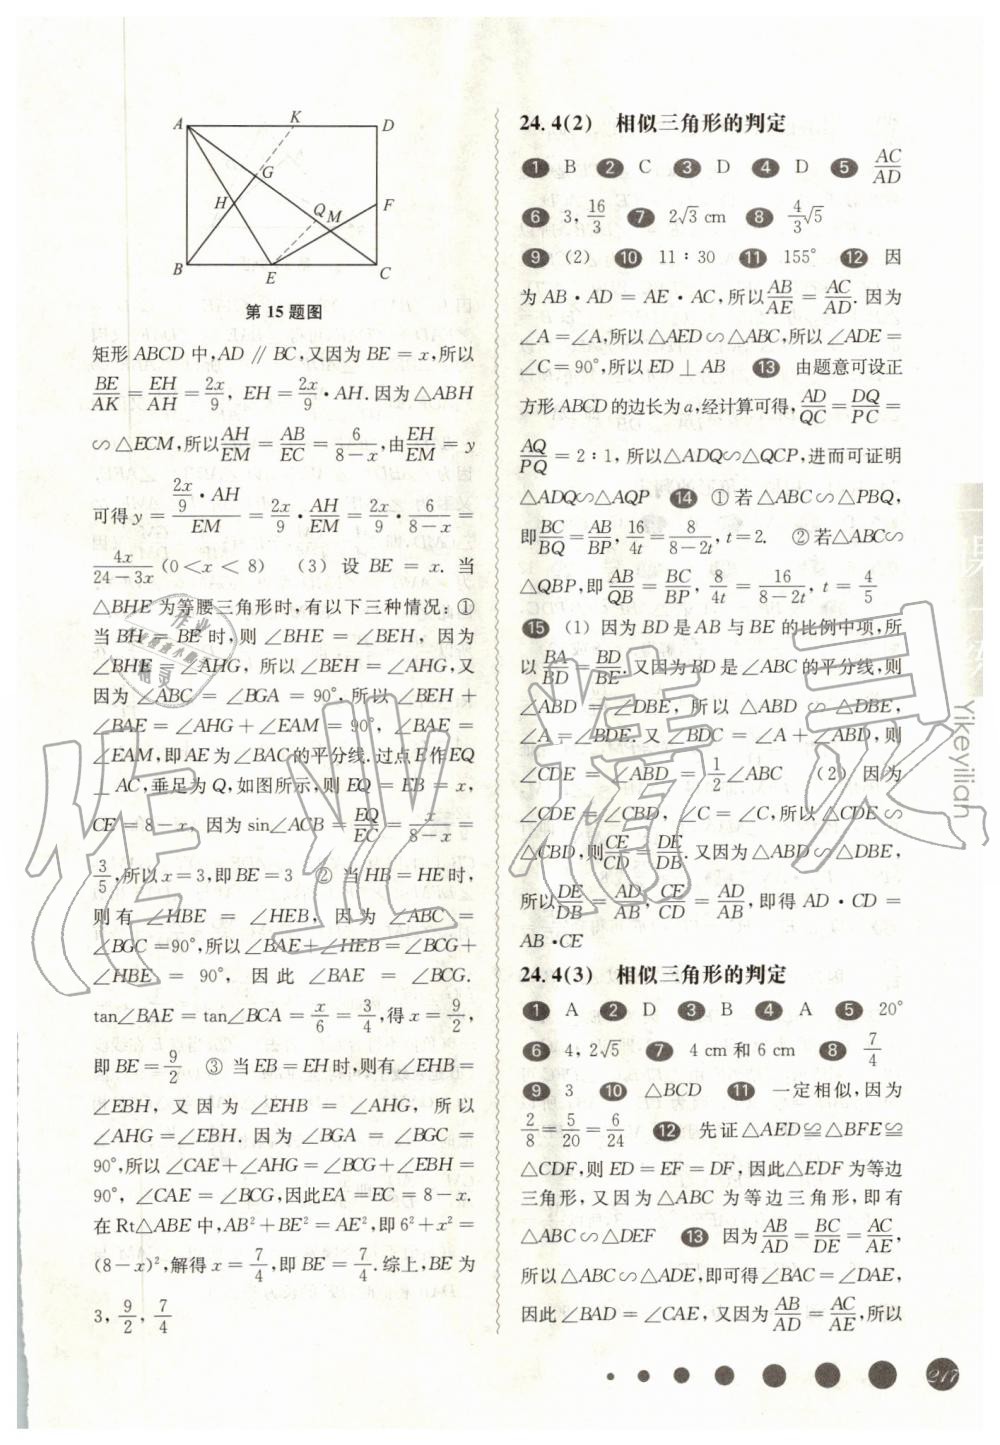 A K D
G
H Q M F
B E C
第15题图
矩形ABCD中,AD∥BC,又因为BE=x,所以
BE/AK=EH/AH=2x/9, EH=2x/9·AH.因为△ABH
∽△ECM,所以AH/EM=AB/EC=6/(8-x),由EH/EM=y
可得y=(2x/9·AH)/EM=2x/9·AH/EM=2x/9·6/(8-x)=
4x/(24-3x)(0<x<8) (3) 设BE=x.当
△BHE为等腰三角形时,有以下三种情况:①
当BH=BE时,则∠BHE=∠BEH,因为
∠BHE=∠AHG,所以∠BEH=∠AHG,又
因为∠ABC=∠BGA=90°,所以∠BEH+
∠BAE=∠AHG+∠EAM=90°,∠BAE=
∠EAM,即AE为∠BAC的平分线.过点E作EQ
⊥AC,垂足为Q,如图所示,则EQ=EB=x,
CE=8-x, 因为sin∠ACB=EQ/EC=x/(8-x)=
3/5,所以x=3,即BE=3 ② 当HB=HE时,
则有∠HBE=∠HEB,因为∠ABC=
∠BGC=90°,所以∠BAE+∠HEB=∠BCG+
∠HBE=90°,因此∠BAE=∠BCG.
tan∠BAE=tan∠BCA=x/6=3/4,得x=9/2,
即BE=9/2 ③ 当EB=EH时,则有∠EHB=
∠EBH,又因为∠EHB=∠AHG,所以
∠AHG=∠EBH.因为∠BGA=∠BGC=
90°,所以∠CAE+∠AHG=∠BCG+∠EBH=
90°,∠CAE=∠BCG,因此EA=EC=8-x.
在Rt△ABE中,AB²+BE²=AE²,即6²+x²=
(8-x)²,解得x=7/4,即BE=7/4.综上,BE为
3, 9/2, 7/4
24.4(2) 相似三角形的判定
1 B 2 C 3 D 4 D 5 AC/AD
6 3, 16/3 7 2√3 cm 8 4/3√5
9 (2) 10 11:30 11 155° 12 因
为AB·AD=AE·AC,所以AB/AE=AC/AD.因为
∠A=∠A,所以△AED∽△ABC,所以∠ADE=
∠C=90°,所以ED⊥AB 13 由题意可设正
方形ABCD的边长为a,经计算可得,AD/QC=DQ/PC=
AQ/PQ=2:1,所以△ADQ∽△QCP,进而可证明
△ADQ∽△AQP 14 ①若△ABC∽△PBQ,
即BC/BQ=AB/BP, 16/4t=8/(8-2t), t=2. ②若△ABC∽
△QBP,即AB/QB=BC/BP, 8/4t=16/(8-2t), t=4/5
15 (1) 因为BD是AB与BE的比例中项,所
以BA/BD=BD/BE.又因为BD是∠ABC的平分线,则
∠ABD=∠DBE,所以△ABD∽△DBE,
∠A=∠BDE.又∠BDC=∠A+∠ABD,则
∠CDE=∠ABD=1/2∠ABC (2) 因为
∠CDE=∠CBD,∠C=∠C,所以△CDE∽
△CBD,则CE/CD=DE/DB.又因为△ABD∽△DBE,
所以DE/DB=AD/AB, CE/CD=AD/AB,即得AD·CD=
AB·CE
24.4(3) 相似三角形的判定
1 A 2 D 3 B 4 A 5 20°
6 4, 2√5 7 4 cm和6 cm 8 7/4
9 3 10 △BCD 11 一定相似,因为
2/8=5/20=6/24 12 先证△AED≌△BFE≌
△CDF,则ED=EF=DF,因此△EDF为等边
三角形,又因为△ABC为等边三角形,即有
△ABC∽△DEF 13 因为AB/AD=BC/DE=AC/AE,
所以△ABC∽△ADE,即可得∠BAC=∠DAE,
因此∠BAD=∠CAE.又因为AB/AD=AC/AE,所以
Yikeyilian
217
作业精灵